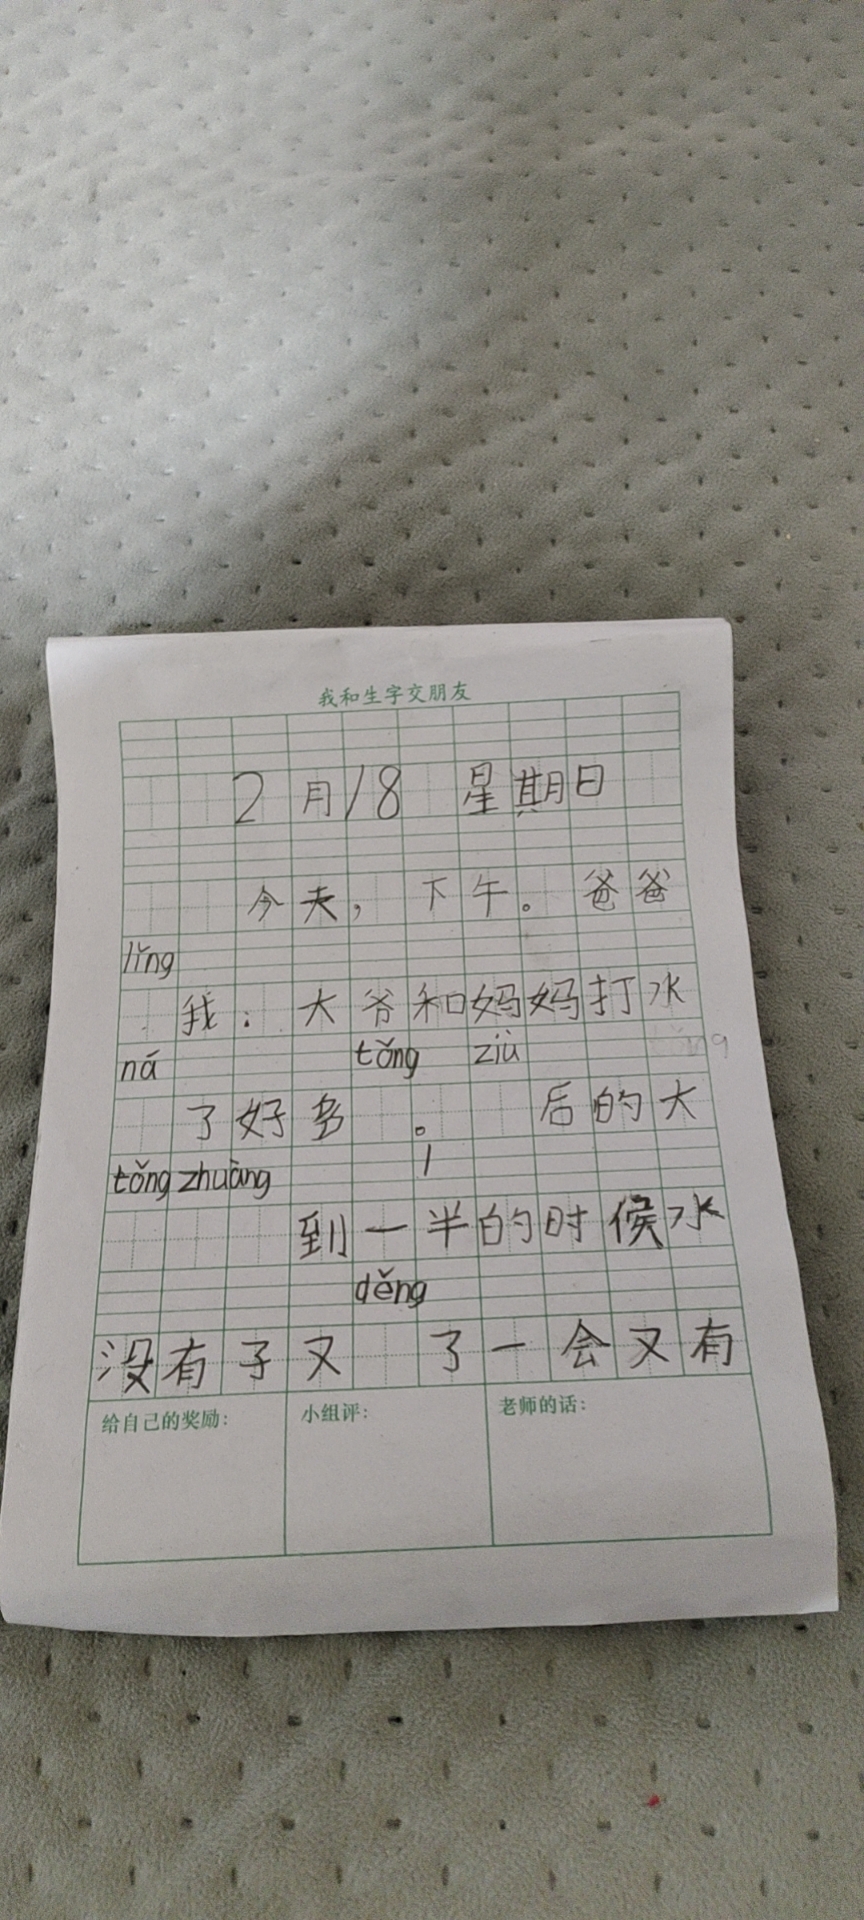 我和生字交朋友
2月18 星期日
今夫，下午。爸爸
lǐng
我：大爷和妈妈打水
ná tǒng ziù
了好多 。 后的大
tǒng zhuàng
到一半的时候水
děng
没有子又 了一会又有
给自己的奖励： 小组评： 老师的话：